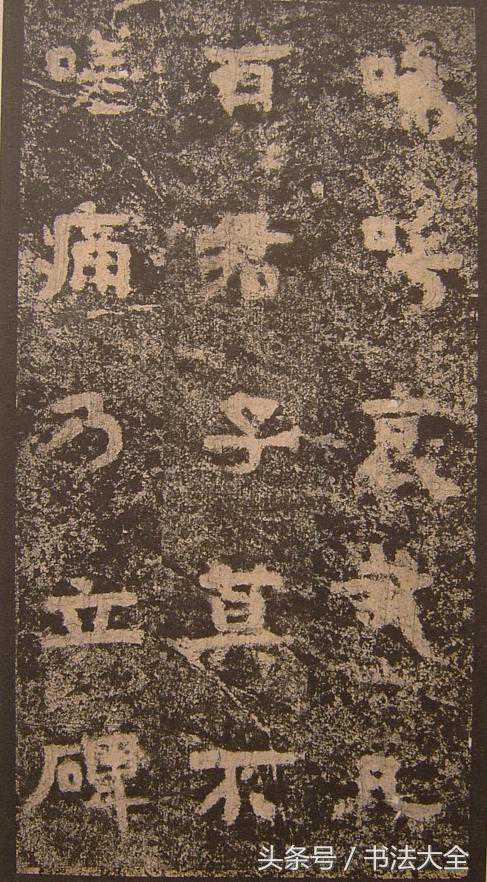 嗚呼哀哉凡
百君子莫不
嗟痛乃立碑
头条号 / 书法大全